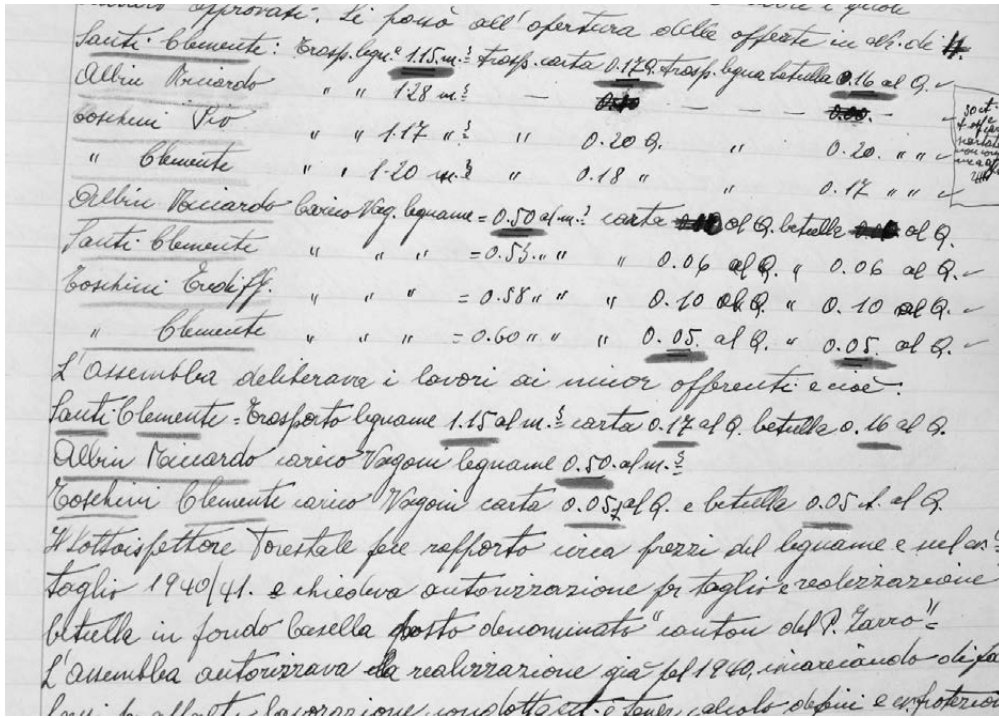 approvati. Si passò all'apertura delle offerte in
Santi Clemente: Trasp. legn.e 1.15. m.3 trasp. carta 0.17 Q. trasp. legna betulla 0.16 al Q.
Albin Riccardo " " 1.28 m.3 — — —
Toschini Pio " " 1.17 " 3 " 0.20 Q. " 0.20. " "
" Clemente " " 1.20 m.3 " 0.18 " " 0.17 " "
Albin Riccardo Carico Vag. legname = 0.50 al m.3 carta al Q. betulle al Q.
Santi Clemente " " " = 0.55. " " " 0.06 al Q. " 0.06 al Q.
Toschini " " " = 0.58 " " " 0.10 al Q. " 0.10 al Q.
" Clemente " " " = 0.60 " " " 0.05. al Q. " 0.05. al Q.
L'assemblea deliberava i lavori ai minor offerenti e cioè:
Santi Clemente = Trasporto legname 1.15 al m.3 carta 0.17 al Q. betulle 0.16 al Q.
Albin Riccardo carico Vagoni legname 0.50. al m.3
Toschini Clemente carico Vagoni carta 0.05 al Q. e betulla 0.05 al Q.
Il Sottoispettore Forestale fece rapporto circa prezzi del legname e
taglio 1940/41. e chiedeva autorizzazione per taglio e realizzazione
betulle in fondo Casella posto denominato "canton del P. Zarro" =
L'assemblea autorizzava la realizzazione già pel 1940, incaricando di
lavorazione condotta